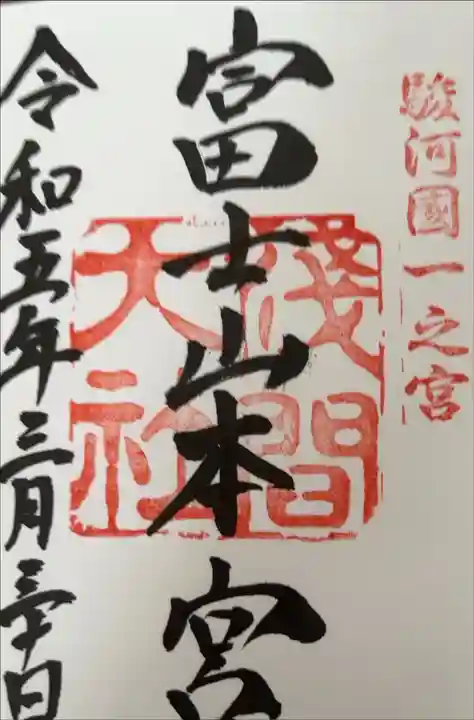 駿河國一之宮
富士山本宮
淺間大社
令和五年三月三十日